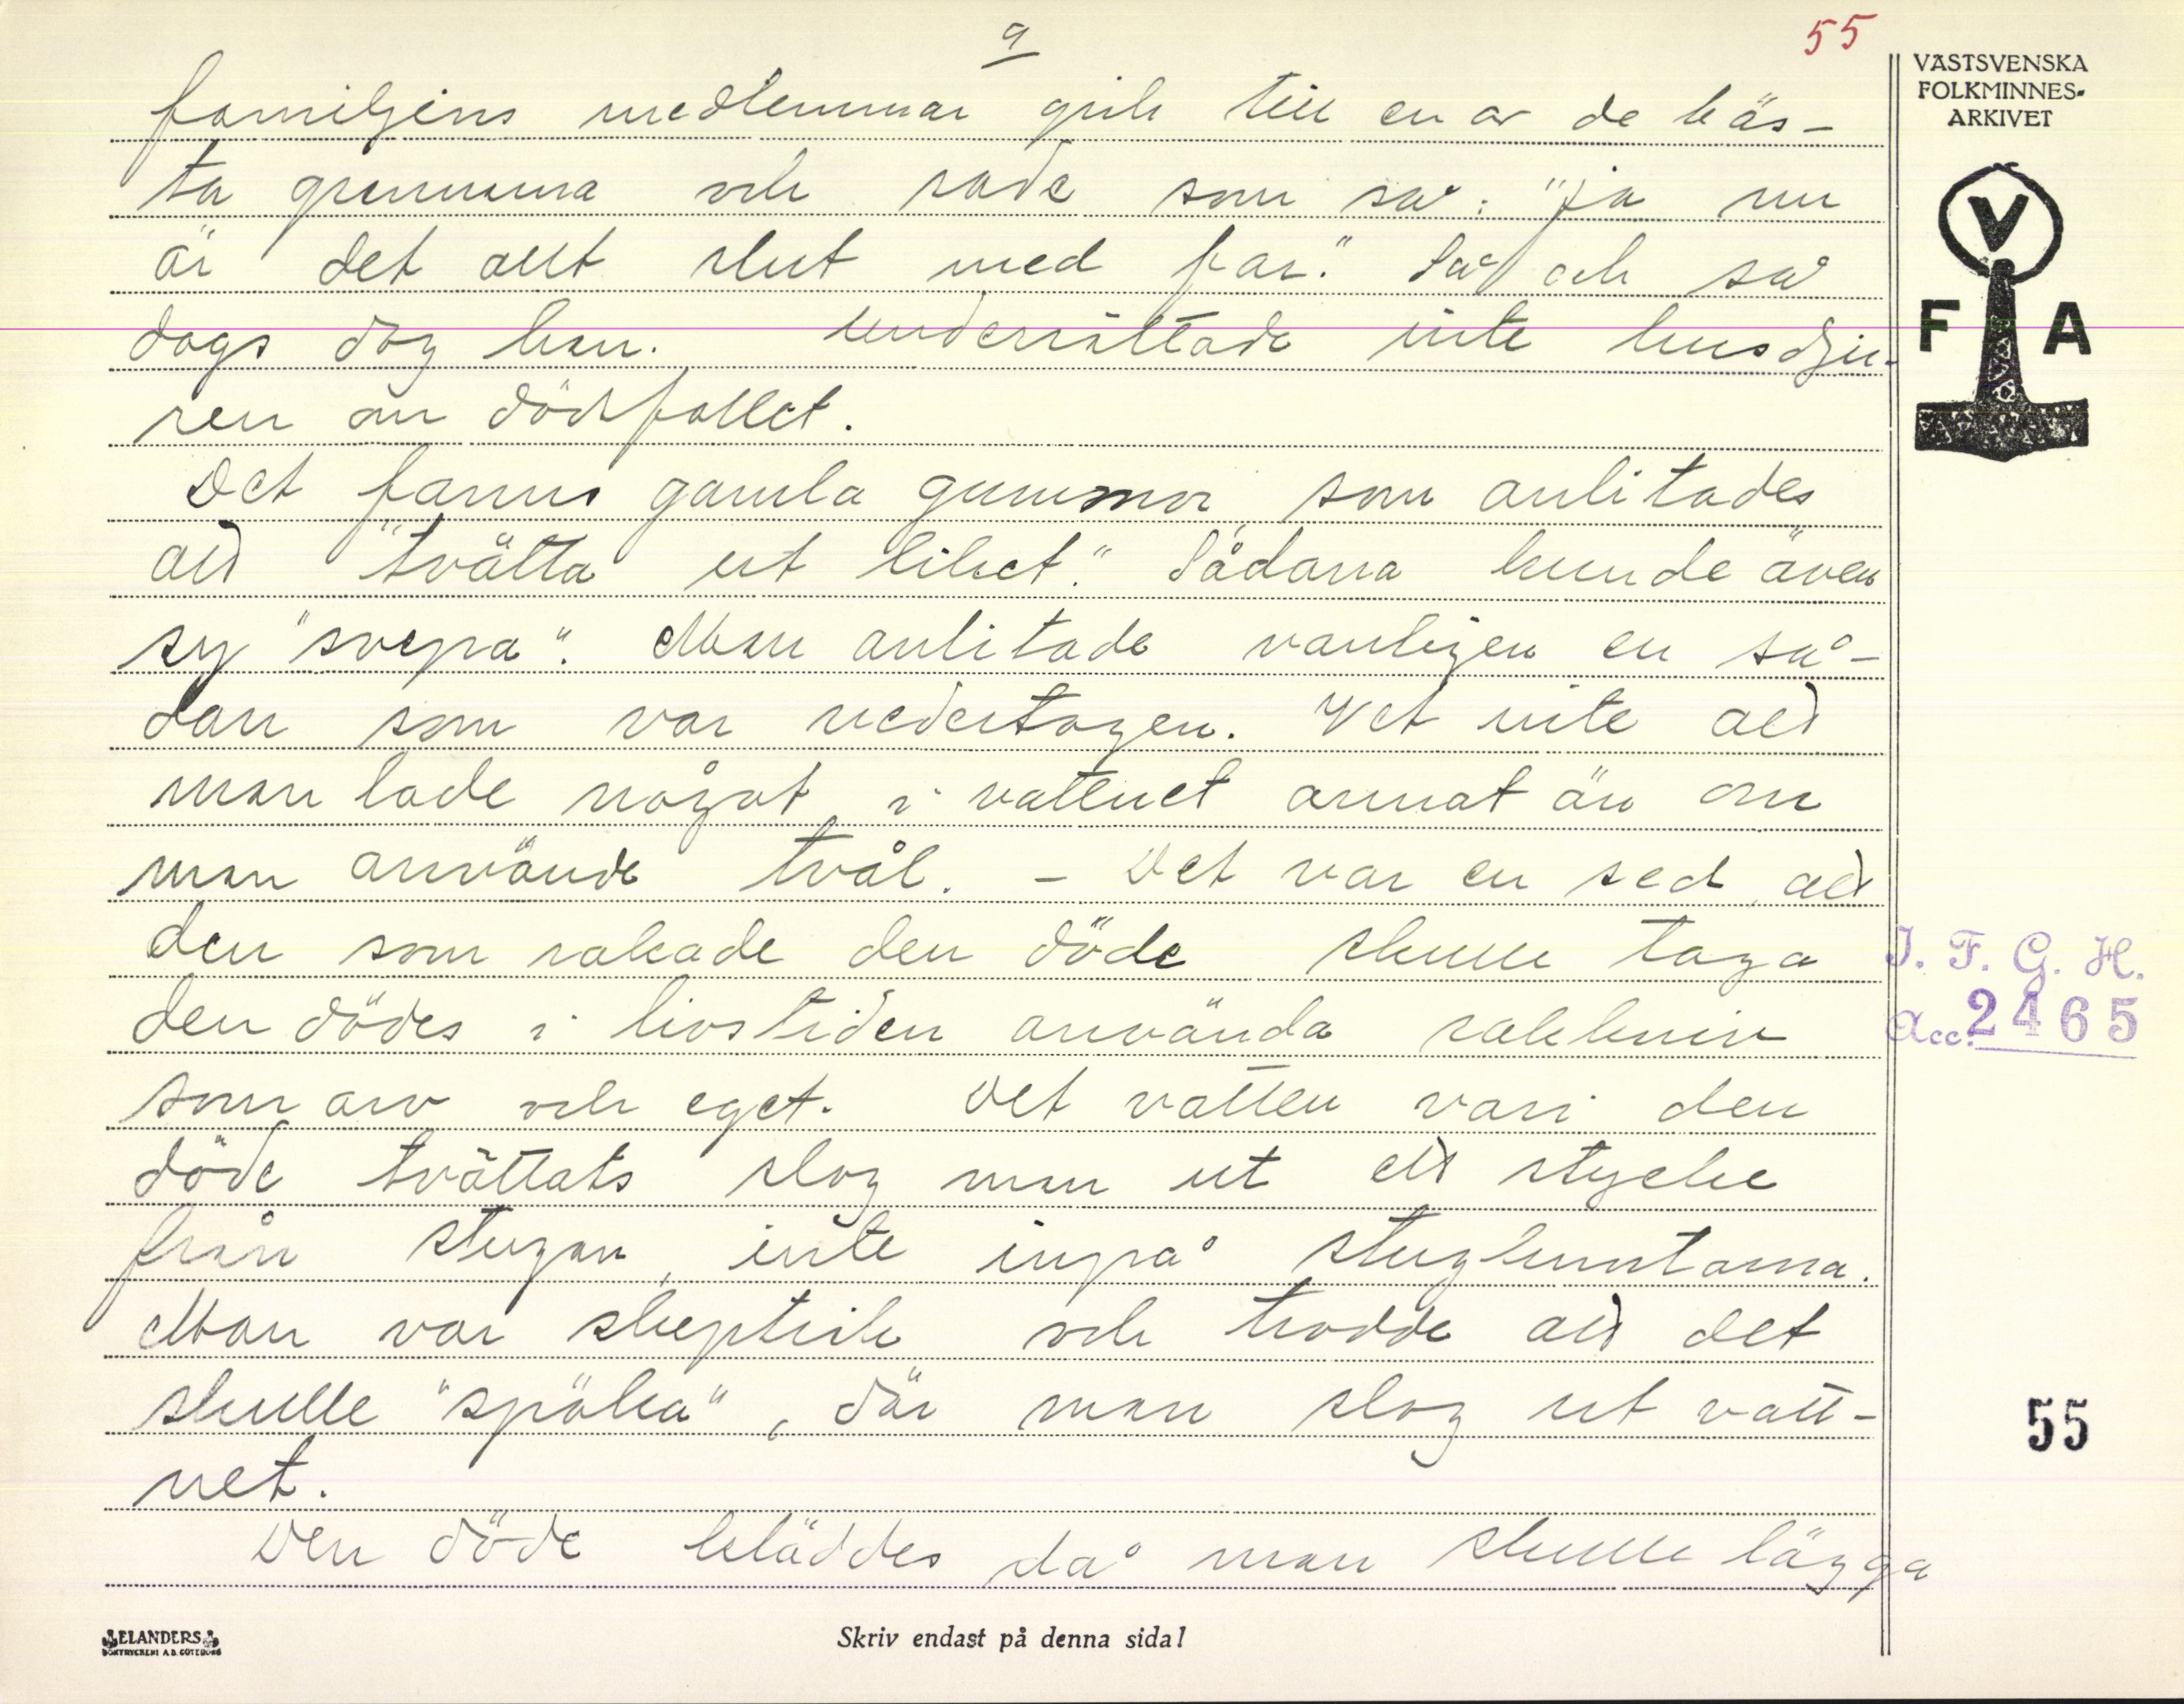 9
55
VÄSTSVENSKA
FOLKMINNES-
ARKIVET
V
F A
familjens medlemmar gick till en av de bäs-
ta grannarna och sade som så: "ja nu
är det allt slut med far." Så och så
dags dog han. Underrättade inte husdju-
ren om dödsfallet.
Det fanns gamla gummor, som anlitades
att "tvätta ut liket." Sådana kunde även
sy "svepa". Man anlitade vanligen en så-
dan som var vedertagen. Vet inte att
man lade något i vattnet annat än om
man använde tvål. - Det var en sed, att
den som rakade den döde skulle taga
den dödes i livstiden använda rakkniv
som arv och eget. Det vatten vari den
döde tvättats slog man ut ett stycke
från stugan, inte inpå stugknutarna.
Man var skeptisk och trodde att det
skulle "spöka", där man slog ut vatt-
net.
Den döde kläddes då man skulle lägga
I. F. G. H.
Acc. 2465
55
ELANDERS
BOKTRYCKERI A.B. GÖTEBORG
Skriv endast på denna sida!